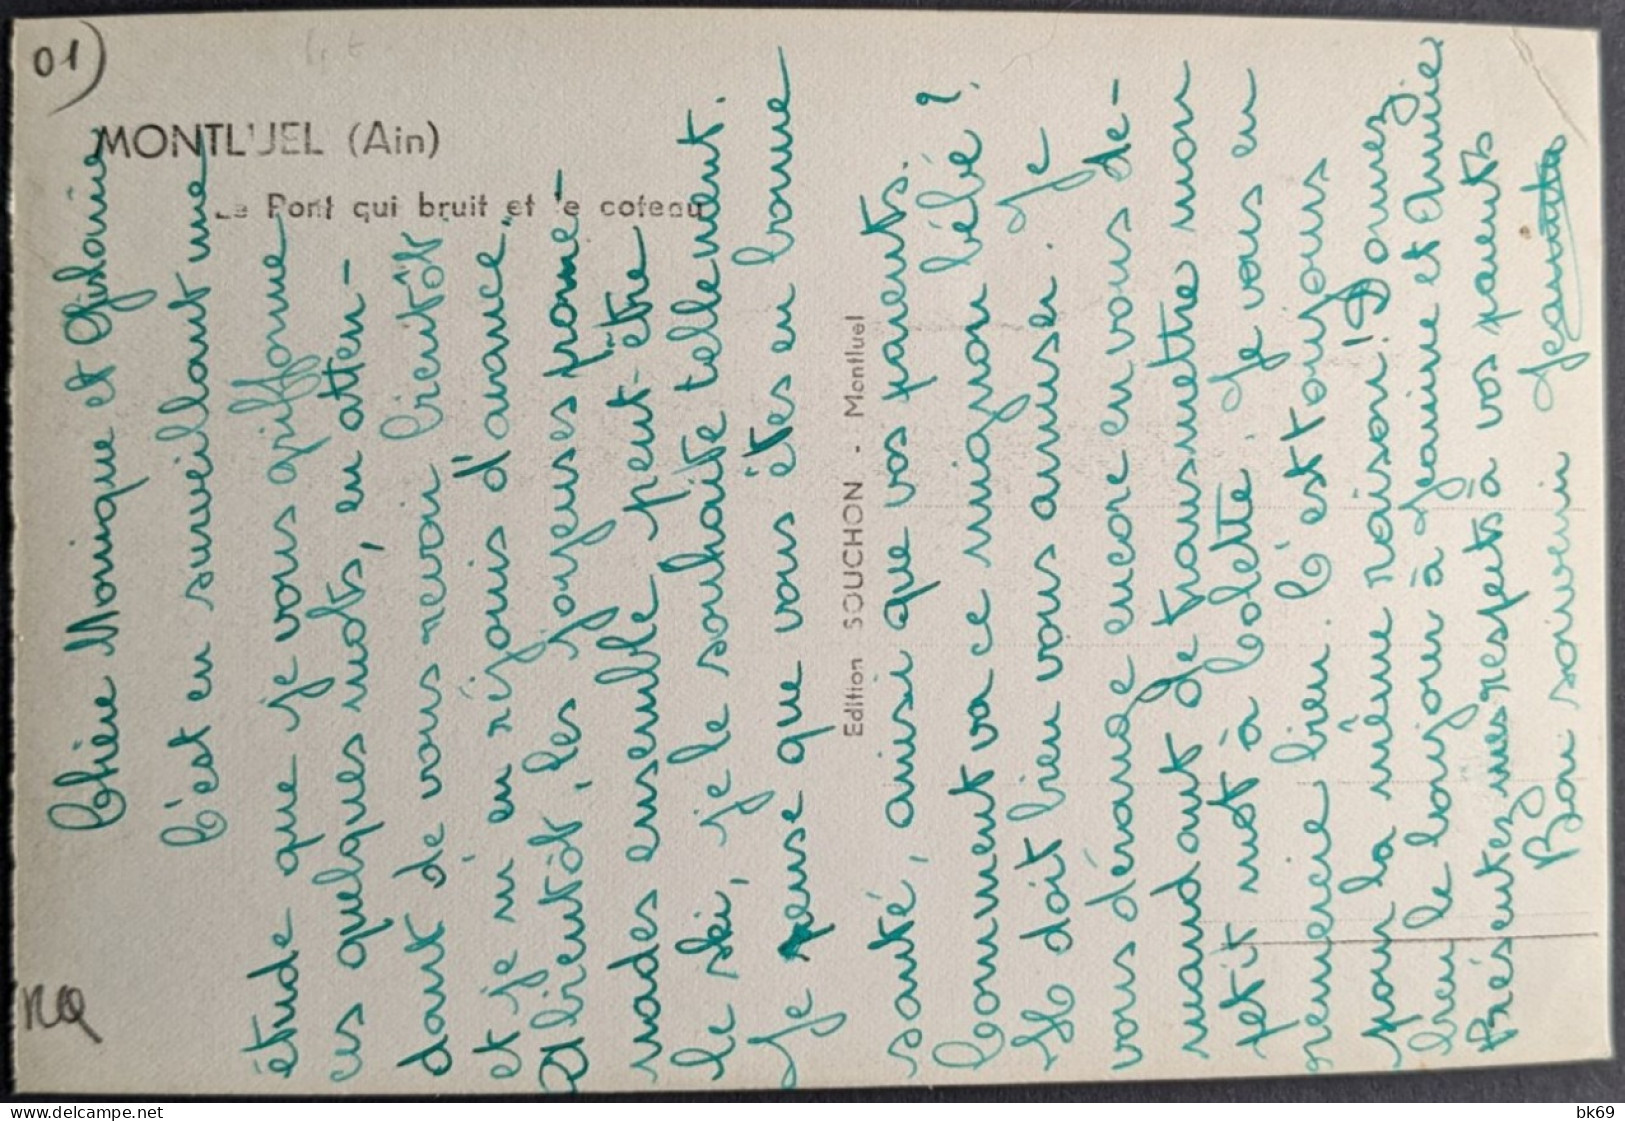 01)
MONTLUEL (Ain)
Le Pont qui bruit et le coteau
Edition SOUCHON - Montluel
NQ
Chère Monique et Ghislaine
C'est en surveillant une
étude que je vous griffonne
ces quelques mots, en atten-
dant de vous revoir bientôt
et je m'en réjouis d'avance.
A bientôt, les joyeuses prome-
nades ensemble peut-être
le ski, je le souhaite tellement.
Je pense que vous êtes en bonne
santé, ainsi que vos parents.
Comment va ce mignon bébé ?
Il doit bien vous amuser. Je
vous dérange encore en vous de-
mandant de transmettre mon
petit mot à Colette. Je vous en
remercie bien. C'est toujours
pour la même raison ! Donnez
bien le bonjour à Jeanine et Annie.
Présentez mes respects à vos parents
Bon souvenir
bk69